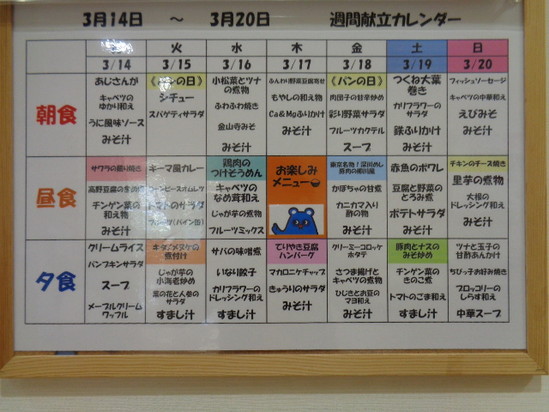 3月14日　～　3月20日　週間献立カレンダー
火　水　木　金　土　日
3/14　3/15　3/16　3/17　3/18　3/19　3/20
朝食
あじさんが
キャベツの
ゆかり和え
うに風味ソース
みそ汁
《パンの日》
シチュー
スパゲティサラダ
小松菜とツナ
の煮物
ふわふわ焼き
金山寺みそ
みそ汁
ふんわり野菜豆腐寄せ
もやしの和え物
Ca&Mgふりかけ
みそ汁
《パンの日》
肉団子の甘辛炒め
彩り野菜サラダ
フルーツカクテル
スープ
つくね大葉
巻き
カリフラワーの
サラダ
鉄ふりかけ
みそ汁
フィッシュソーセージ
キャベツの中華和え
えびみそ
みそ汁
昼食
サワラの照り焼き
高野豆腐の含め煮
チンゲン菜の
和え物
みそ汁
キーマ風カレー
トマトのサラダ
鶏肉の
つけそうめん
キャベツの
なめ茸和え
じゃが芋の煮物
フルーツミックス
お楽しみ
メニュー
かぼちゃの甘煮
カニカマ入り
酢の物
みそ汁
赤魚のポワレ
豆腐と野菜の
とろみ煮
ポテトサラダ
みそ汁
チキンのチーズ焼き
里芋の煮物
大根の
ドレッシング和え
みそ汁
夕食
クリームライス
パンプキンサラダ
スープ
メープルクリーム
ワッフル
煮付け
じゃが芋の
小海老炒め
菜の花と人参の
サラダ
すまし汁
サバの味噌煮
いなり餃子
カリフラワーの
ドレッシング和え
みそ汁
てりやき豆腐
ハンバーグ
マカロニケチャップ
きゅうりのサラダ
みそ汁
クリーミーコロッケ
ホタテ
さつま揚げと
キャベツの煮物
ひじきとお豆の
マヨ和え
みそ汁
豚肉とナスの
みそ炒め
チンゲン菜の
きのこ煮
トマトのごま和え
すまし汁
ツナと玉子の
甘酢あんかけ
ちぴっ子お好み焼き
ブロッコリーの
しらす和え
中華スープ